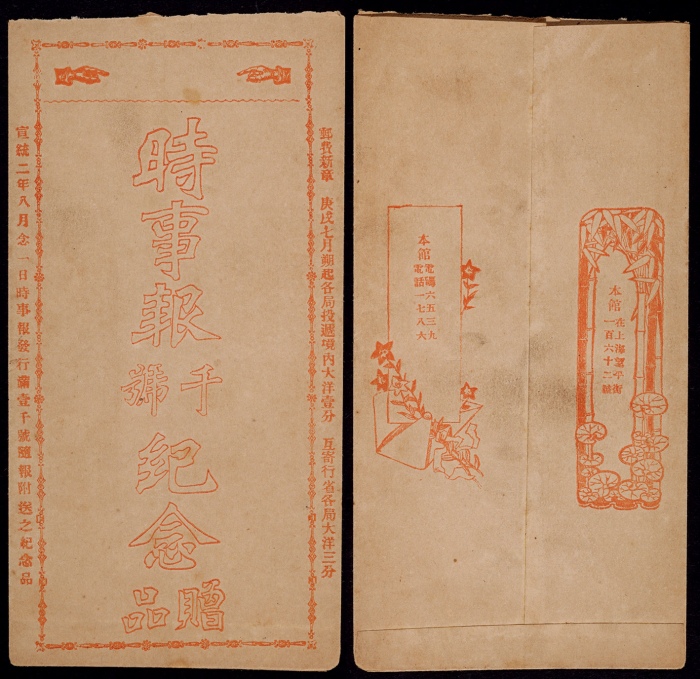 郵費新章　庚戌七月朔起各局投遞境內大洋壹分　互寄行省各局大洋三分
時事報
千號
紀念
贈品
宣統二年八月念一日時事報發行滿壹千號隨報附送之紀念品
本館
電碼六五三九
電話一七八六
本館
在上海望平街
一百六十二號